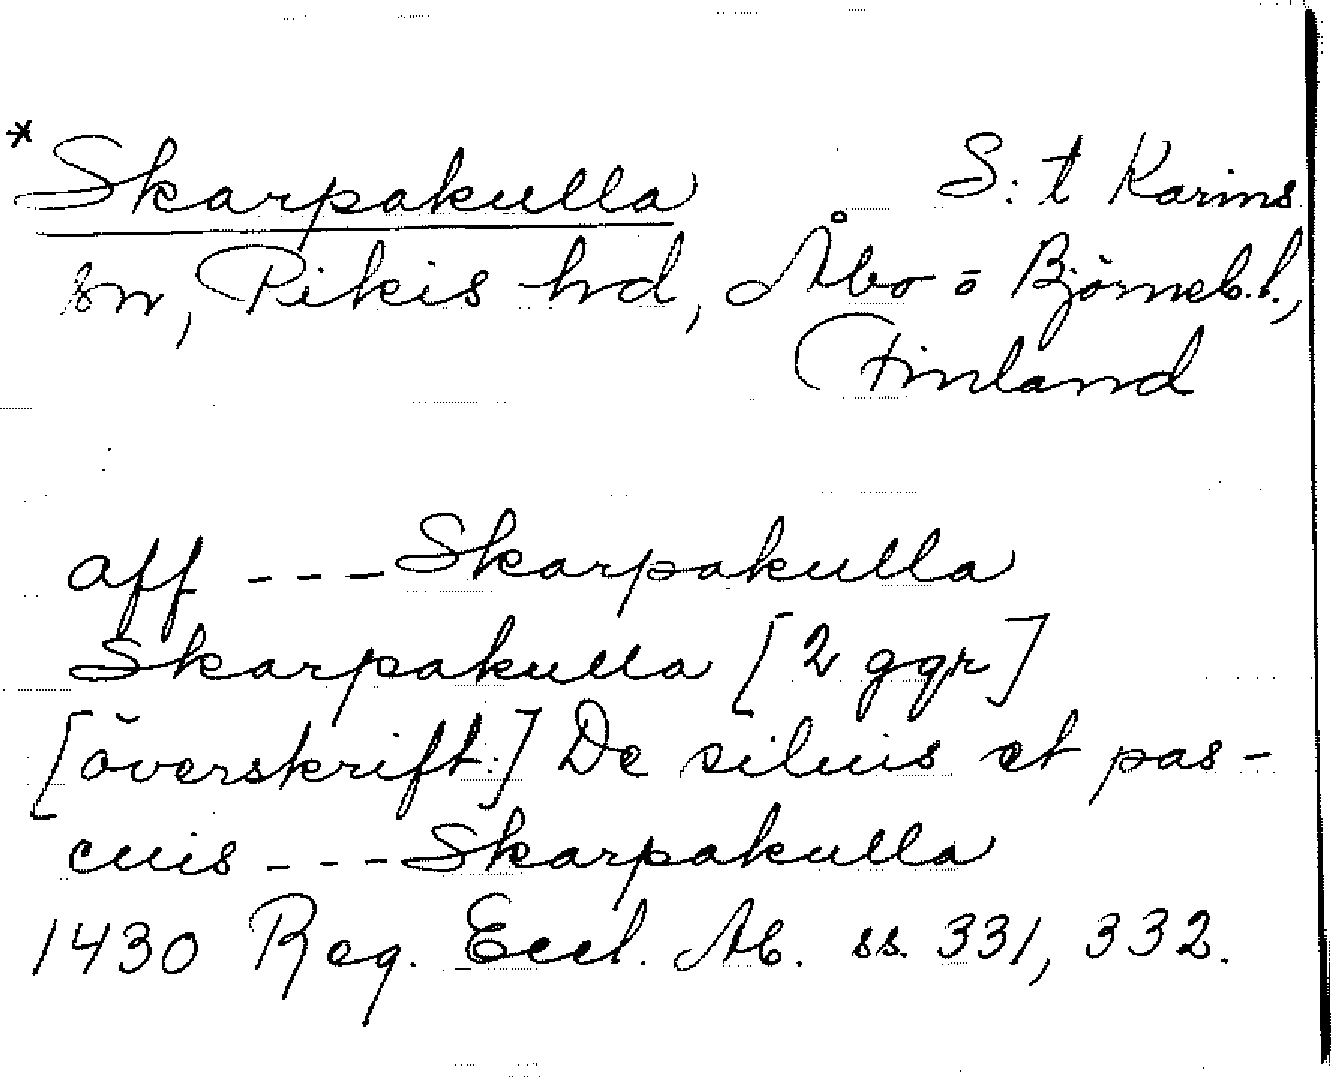 * Skarpakulla S:t Karins
sn, Pikis hd, Åbo o Björneb. l.,
Finland
aff --- Skarpakulla
Skarpakulla [2 ggr]
[överskrift:] De siluis et pas-
cuis --- Skarpakulla
1430 Reg. Eccl. Ab. ss. 331, 332.